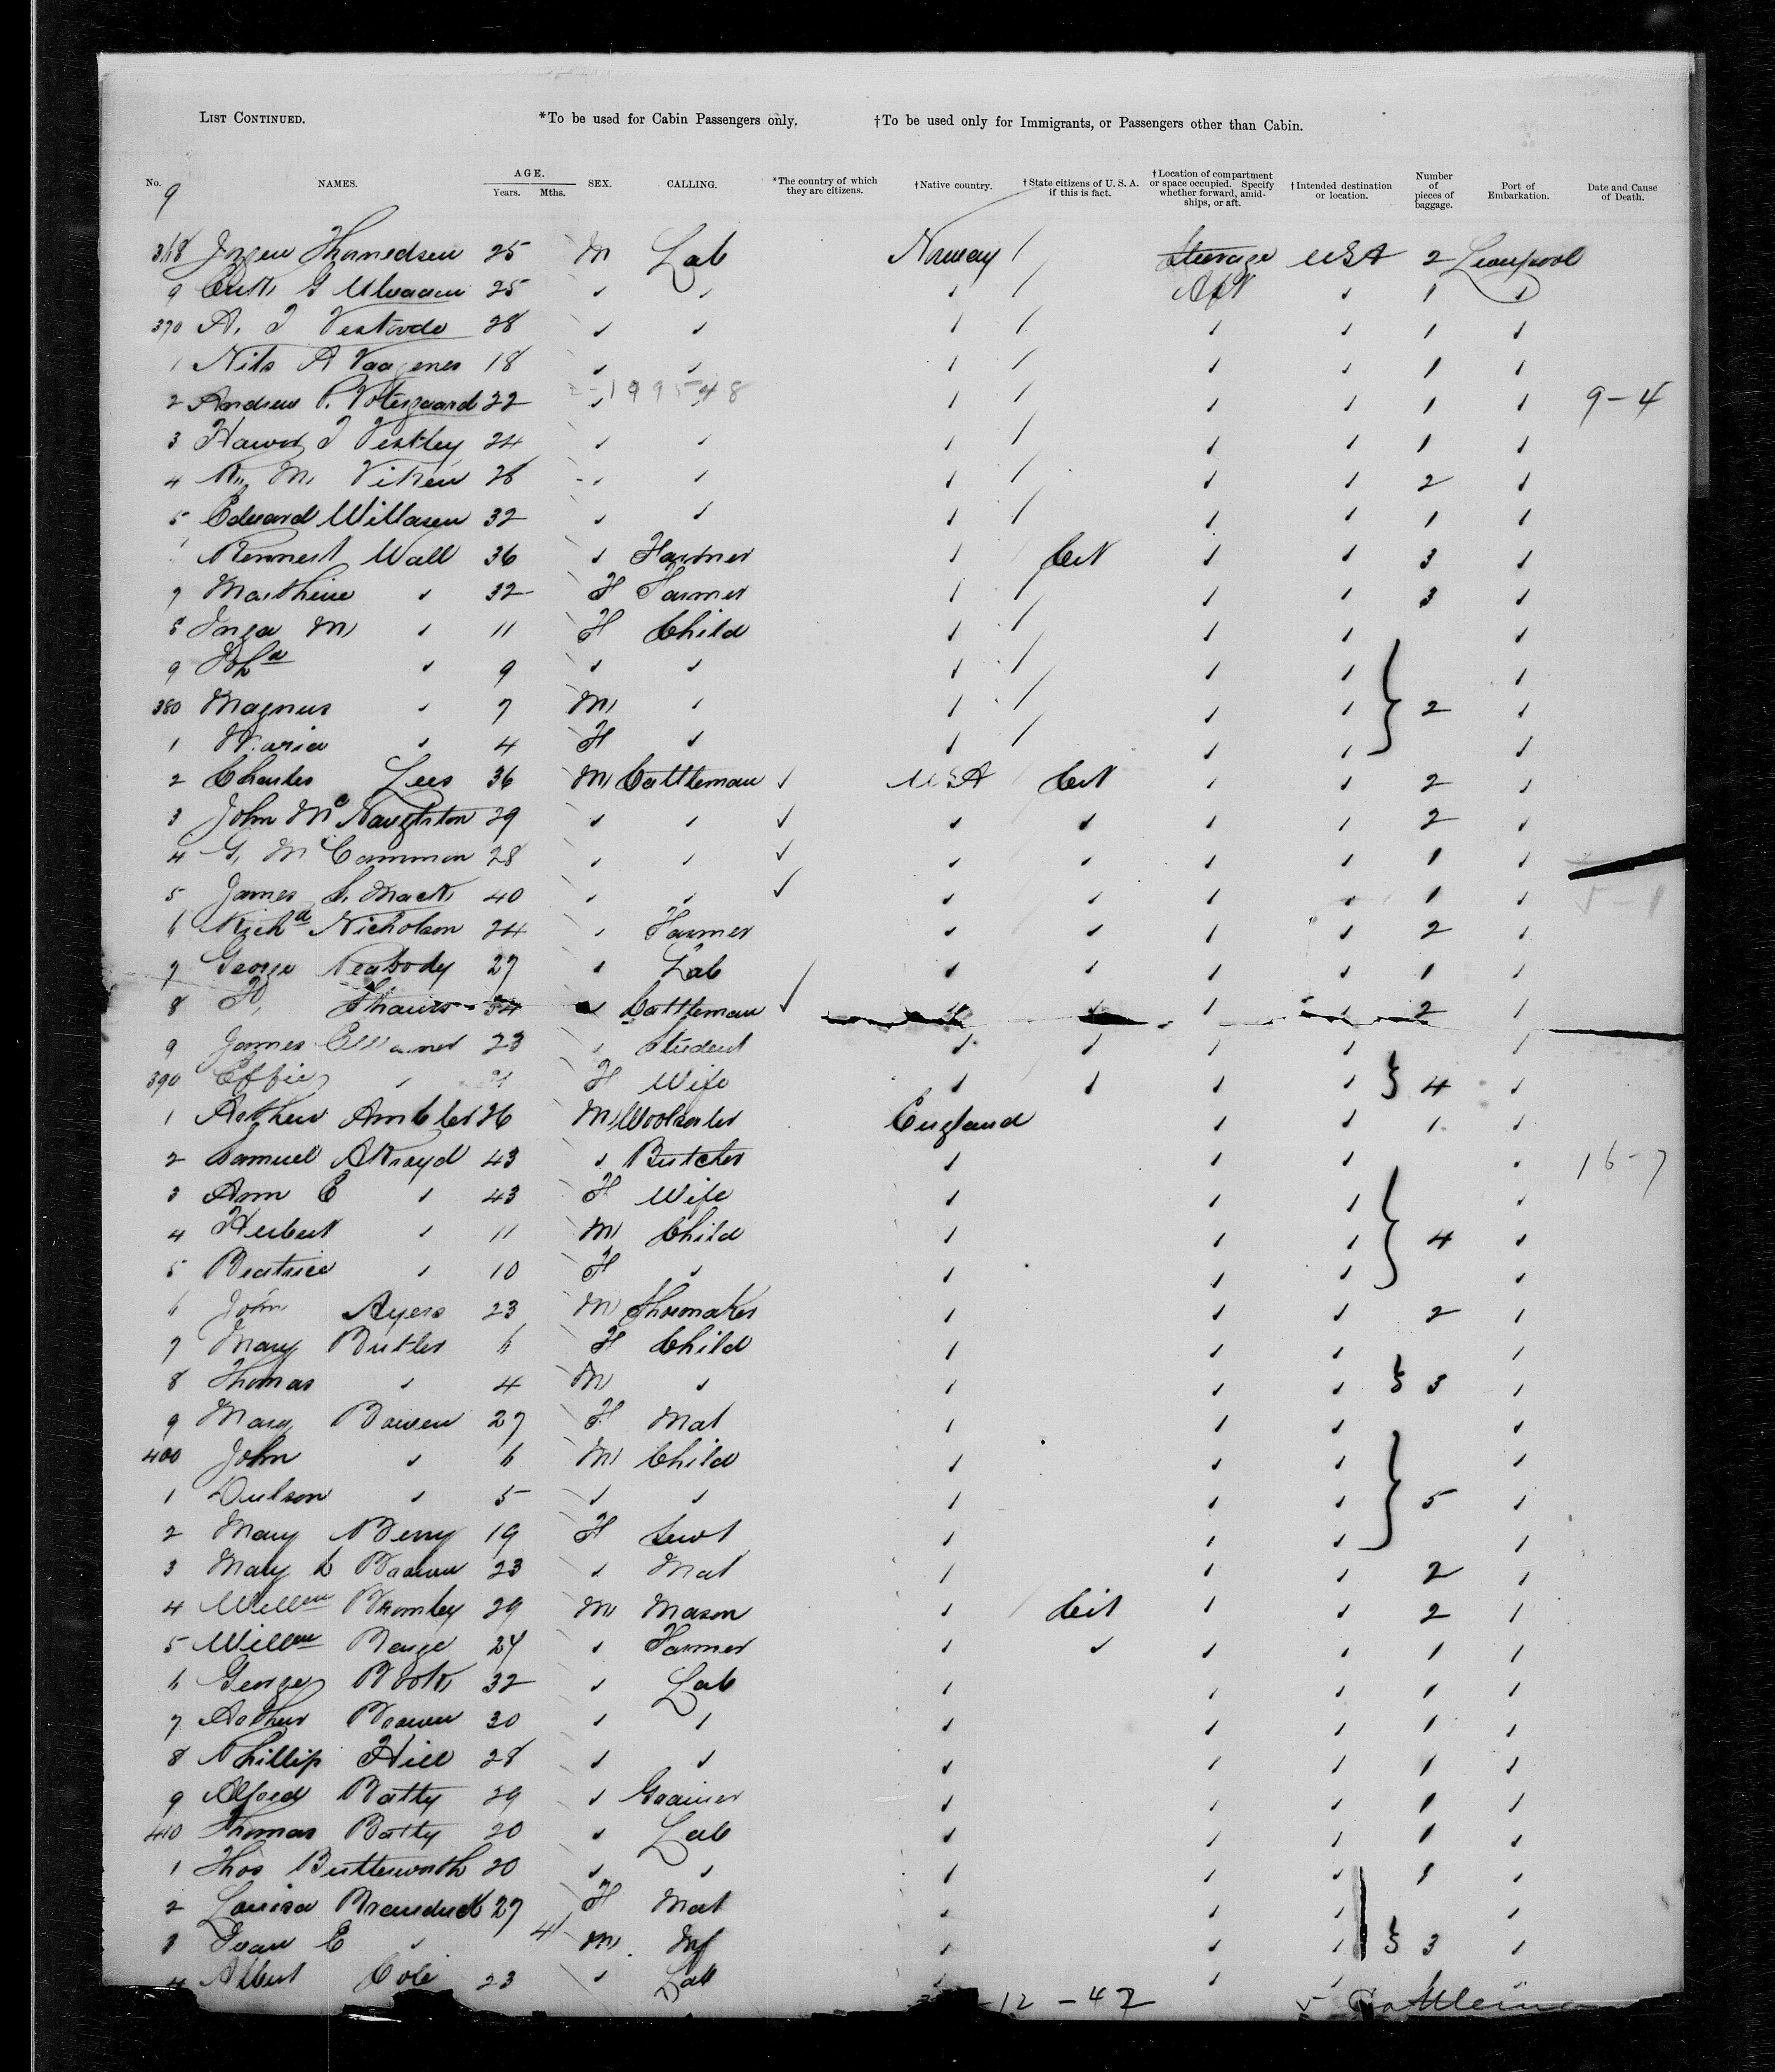 LIST CONTINUED. *To be used for Cabin Passengers only. †To be used only for Immigrants, or Passengers other than Cabin.
No. NAMES. AGE. Years. Mths. SEX. CALLING. *The country of which they are citizens. †Native country. †State citizens of U. S. A. if this is fact. †Location of compartment or space occupied. Specify whether forward, amid-ships, or aft. †Intended destination or location. Number of pieces of baggage. Port of Embarkation. Date and Cause of Death.
9
368 25 M Lab Norway / Steerage USA 2 Liverpool
9 25 ✓ ✓ ✓ / Aft ✓ 1 ✓
370 A. 28 ✓ ✓ ✓ / ✓ ✓ 1 ✓
1 Nils A 18 ✓ ✓ ✓ / ✓ ✓ 1 ✓
2 Andrew P. 22 ✓ 199548 ✓ / ✓ ✓ 1 ✓ 9-4
3 Vestley 24 ✓ ✓ ✓ / ✓ ✓ 1 ✓
4 M Viken 26 ✓ ✓ ✓ / ✓ ✓ 2 ✓
5 Edward Willasen 32 ✓ ✓ ✓ / ✓ ✓ 1 ✓
Wall 36 ✓ Farmer ✓ / Cit ✓ ✓ 3 ✓
7 Mathine ✓ 32 F Farmer ✓ / ✓ ✓ 3 ✓
8 Inga M ✓ 11 F Child ✓ / ✓ ✓ ✓
9 ✓ 9 ✓ ✓ ✓ / ✓ ✓ ✓
380 Magnus ✓ 7 M ✓ ✓ / ✓ ✓ 2 ✓
1 Maria ✓ 4 F ✓ ✓ / ✓ ✓ ✓
2 Charles Lees 36 M Cattleman ✓ USA / Cit ✓ ✓ 2 ✓
3 John McNaughton 29 ✓ ✓ ✓ ✓ ✓ ✓ ✓ 2 ✓
4 G. McCammon 28 ✓ ✓ ✓ ✓ ✓ ✓ ✓ 1 ✓
5 James S. Mack 40 ✓ ✓ ✓ ✓ ✓ ✓ ✓ 1 ✓ 5-1
6 Richd Nicholson 24 ✓ Farmer ✓ ✓ ✓ ✓ 2 ✓
7 George Peabody 27 ✓ Lab ✓ ✓ ✓ ✓ 1 ✓
8 34 ✓ Cattleman ✓ ✓ ✓ ✓ ✓ 2 ✓
9 James 23 ✓ Student ✓ ✓ ✓ ✓ ✓
390 Effie ✓ F Wife ✓ ✓ ✓ ✓ 4 ✓
1 Arthur Ambler 26 M Woolsorter England ✓ ✓ 1 ✓
2 Samuel Akroyd 43 ✓ Butcher ✓ ✓ ✓ ✓ 16-7
3 Ann E ✓ 43 F Wife ✓ ✓ ✓ ✓
4 Herbert ✓ 11 M Child ✓ ✓ ✓ 4 ✓
5 Beatrice ✓ 10 F ✓ ✓ ✓ ✓ ✓
6 John Ayers 23 M Shoemaker ✓ ✓ ✓ 2 ✓
7 Mary Butler 6 F Child ✓ ✓ ✓ ✓
8 Thomas ✓ 4 M ✓ ✓ ✓ ✓ 3 ✓
9 Mary Bowen 27 F Mat ✓ ✓ ✓ ✓
400 John ✓ 6 M Child ✓ ✓ ✓ ✓
1 ✓ 5 ✓ ✓ ✓ ✓ ✓ 5 ✓
2 Mary Berry 19 F Servt ✓ ✓ ✓ ✓
3 Mary 23 ✓ Mat ✓ ✓ ✓ 2 ✓
4 Willm Bromley 29 M Mason ✓ / Cit ✓ ✓ 2 ✓
5 Willm 24 ✓ Farmer ✓ ✓ ✓ ✓ 1 ✓
6 George 32 ✓ Lab ✓ ✓ ✓ 1 ✓
7 Arthur 30 ✓ ✓ ✓ ✓ ✓ 1 ✓
8 Phillip Hill 28 ✓ ✓ ✓ ✓ ✓ 1 ✓
9 Alfred Batty 29 ✓ Grainer ✓ ✓ ✓ 1 ✓
410 Thomas Batty 20 ✓ Lab ✓ ✓ ✓ 1 ✓
1 Thos Butterworth 20 ✓ ✓ ✓ ✓ ✓ 1 ✓
2 Louisa 27 F Mat ✓ ✓ ✓ ✓
3 E ✓ 4 M Inf ✓ ✓ ✓ 3 ✓
4 Albert Cole 23 ✓ Lab ✓ ✓ ✓
-12 -42 5 Cattlemen